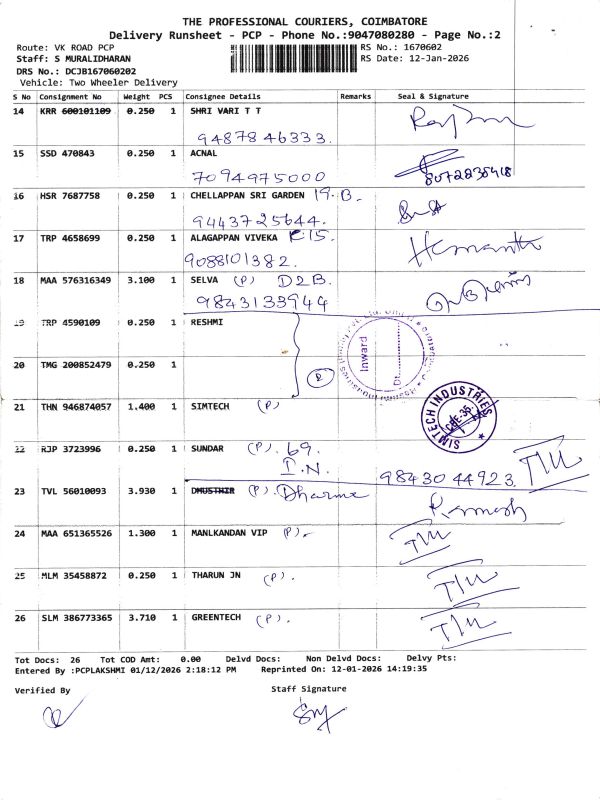 THE PROFESSIONAL COURIERS, COIMBATORE
Delivery Runsheet - PCP - Phone No.:9047080280 - Page No.:2
Route: VK ROAD PCP RS No.: 1670602
Staff: S MURALIDHARAN RS Date: 12-Jan-2026
DRS No.: DCJB167060202
Vehicle: Two Wheeler Delivery
S No Consignment No Weight PCS Consignee Details Remarks Seal & Signature
14 KRR 600101109 0.250 1 SHRI VARI T T
9487846333.
15 SSD 470843 0.250 1 ACNAL
7094975000 8072835418
16 HSR 7687758 0.250 1 CHELLAPPAN SRI GARDEN 19.B.
9443725644.
17 TRP 4658699 0.250 1 ALAGAPPAN VIVEKA E15.
9088101382. Hemanth
18 MAA 576316349 3.100 1 SELVA (P) D2B.
9843133944
19 TRP 4590109 0.250 1 RESHMI
Inward
Dt.
20 TMG 200852479 0.250 1
21 THN 946874057 1.400 1 SIMTECH (P)
SIMTECH INDUSTRIES
CBE-35
22 RJP 3723996 0.250 1 SUNDAR (P). 69.
I.N. 9843044923
23 TVL 56010093 3.930 1 DMUSTHIR (P). Dharma
Ramesh
24 MAA 651365526 1.300 1 MANLKANDAN VIP (P).
25 MLM 35458872 0.250 1 THARUN JN (P).
26 SLM 386773365 3.710 1 GREENTECH (P).
Tot Docs: 26 Tot COD Amt: 0.00 Delvd Docs: Non Delvd Docs: Delvy Pts:
Entered By :PCPLAKSHMI 01/12/2026 2:18:12 PM Reprinted On: 12-01-2026 14:19:35
Verified By Staff Signature